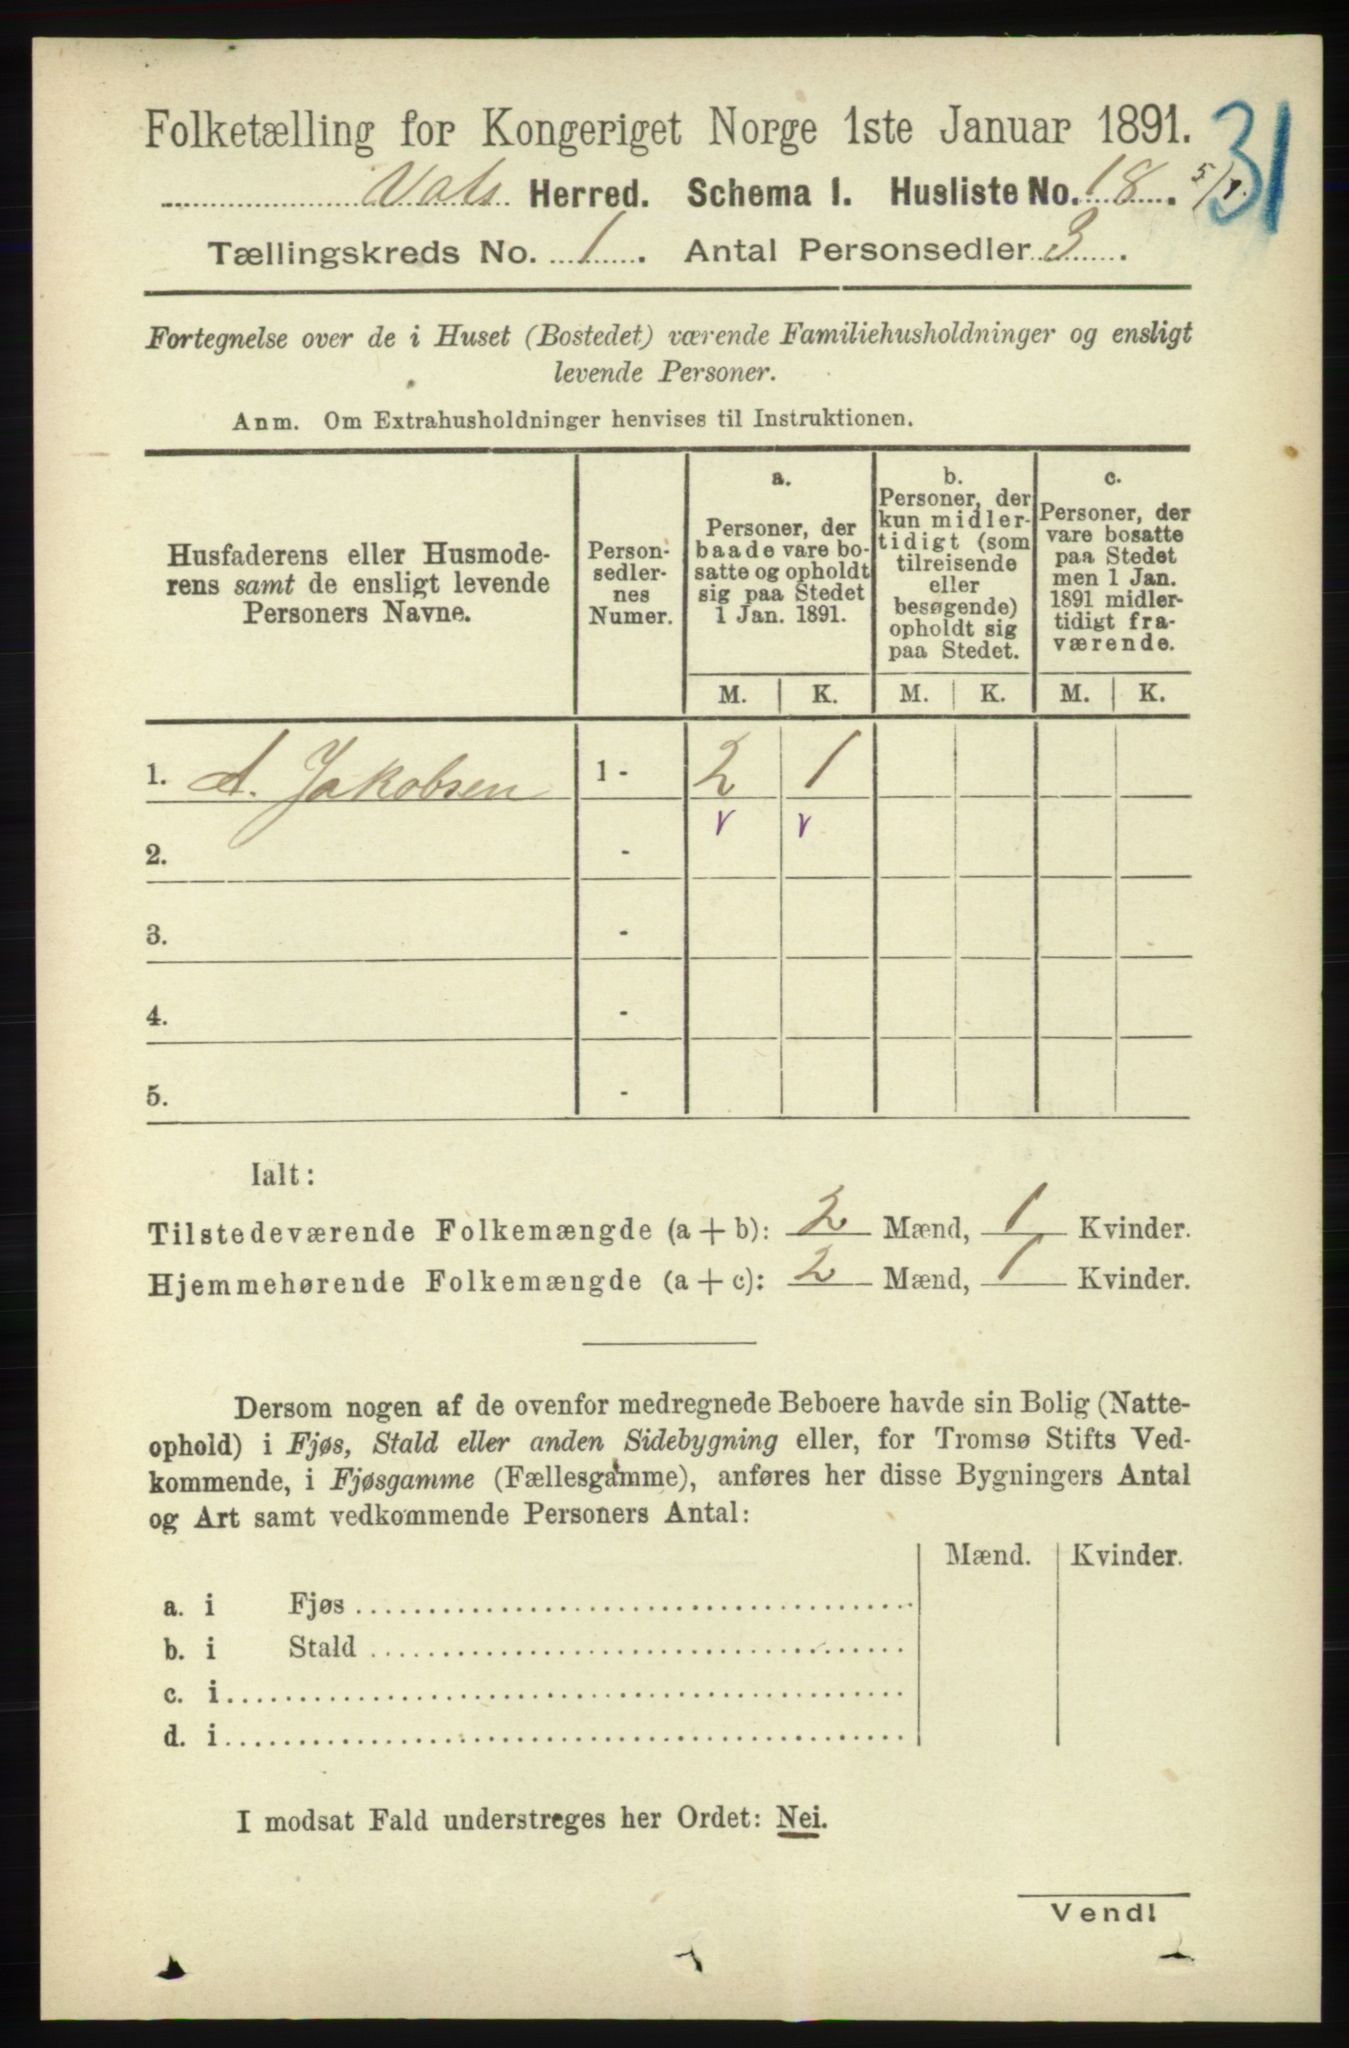 Folketælling for Kongeriget Norge 1ste Januar 1891.
31
Vats Herred. Schema I. Husliste No. 18. 5/1.
Tællingskreds No. 1. Antal Personsedler 3.
Fortegnelse over de i Huset (Bostedet) værende Familiehusholdninger og ensligt
levende Personer.
Anm. Om Extrahusholdninger henvises til Instruktionen.
Husfaderens eller Husmode-
rens samt de ensligt levende
Personers Navne.
Person-
sedler-
nes
Numer.
a.
Personer, der
baade vare bo-
satte og opholdt
sig paa Stedet
1 Jan. 1891.
b.
Personer, der
kun midler-
tidigt (som
tilreisende
eller
besøgende)
opholdt sig
paa Stedet.
c.
Personer, der
vare bosatte
paa Stedet
men 1 Jan.
1891 midler-
tidigt fra-
værende.
M. K. M. K. M. K.
1. A. Jakobsen 1 - 2 1
2. -
3. -
4. -
5. -
Ialt:
Tilstedeværende Folkemængde (a + b): 2 Mænd, 1 Kvinder.
Hjemmehørende Folkemængde (a + c): 2 Mænd, 1 Kvinder.
Dersom nogen af de ovenfor medregnede Beboere havde sin Bolig (Natte-
ophold) i Fjøs, Stald eller anden Sidebygning eller, for Tromsø Stifts Ved-
kommende, i Fjøsgamme (Fællesgamme), anføres her disse Bygningers Antal
og Art samt vedkommende Personers Antal:
Mænd. Kvinder.
a. i Fjøs
b. i Stald
c. i
d. i
I modsat Fald understreges her Ordet: Nei.
Vend!